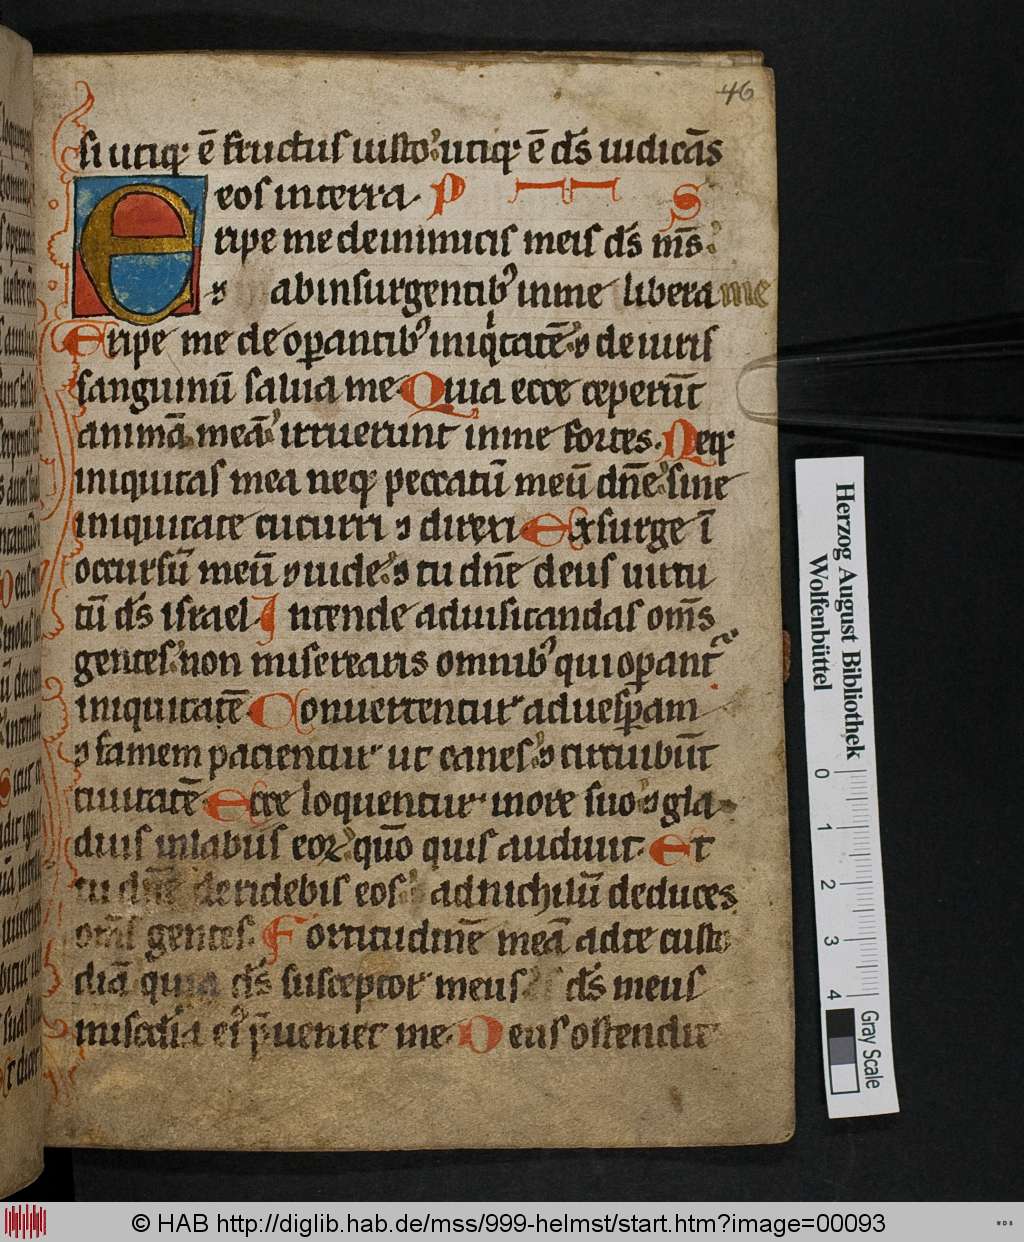 46
si utiq; ē fructus iusto: utiq; ē d̄s iudicās
eos in terra. P S
Eripe me de inimicis meis d̄s m̄s:
⁊ ab insurgentib⁹ in me libera me
Eripe me de oꝑantib⁹ iniqͥtatē: ⁊ de uiris
sanguinū salua me. Quia ecce ceperūt
animā meā: irruerunt in me fortes. Neq;
iniquitas mea neq; peccatū meū dn̄e: sine
iniquitate cucurri ⁊ direxi. Exsurge ī
occursū meū ⁊ uide: ⁊ tu dn̄e deus uirtu
tū d̄s israel. Intende ad uisitandas om̄s
gentes: non miserearis omnib⁹ qui oꝑant᷑
iniquitatē. Conuertentur ad uesꝑam
⁊ famem pacientur ut canes: ⁊ circuibūt
ciuitatē. Ecce loquentur in ore suo ⁊ gla
dius in labiis eoꝝ: quō quis audiuit. Et
tu dn̄e deridebis eos: ad nichilū deduces
om̄s gentes. Fortitudinē meā ad te custo
diā quia d̄s susceptor meus d̄s meus
mis̄cdia ei⁹ p̄ueniet me. Deus ostendit
Herzog August Bibliothek
Wolfenbüttel
0 1 2 3 4
Gray Scale
© HAB http://diglib.hab.de/mss/999-helmst/start.htm?image=00093